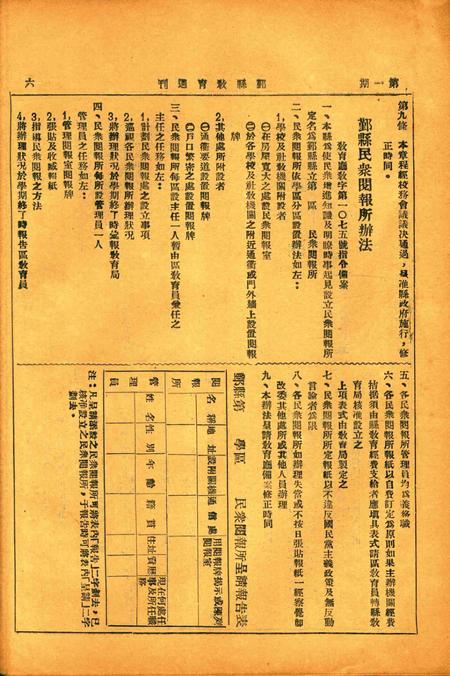 第一期
鄞縣教育週刊
六
第九條　本章程經校務會議議決通過，呈准縣政府施行，修
正時同。
鄞縣民衆閱報所辦法
教育廳教字第一〇七五號指令備案
一、本縣爲使民衆增進知識及明瞭時事起見設立民衆閱報所
定名爲鄞縣縣立第　區　民衆閱報所
二、民衆閱報所依學區分區設置辦法如左：
1,學校及社教機關附設者
㊀在房屋寬大之處設民衆閱報室
㊁於各學校及社教機關之附近通衢或門外牆上設置閱報
牌
2,其他處所附設者
㊀通衢要道設置閱報牌
㊁戶口繁密之處設置閱報牌
三、民衆閱報所每區設主任一人暫由區教育員兼任之
主任之任務如左：
1,計劃民衆閱報處之設立事項
2,巡視各民衆閱報所辦理狀況
3,將辦理狀況於學期終了時彙報教育局
四、民衆閱報所每所設管理員一人
管理員之任務如左：
1,管理閱報室閱報牌
2,張貼及收藏報紙
3,指導民衆閱報之方法
4,將辦理狀況於學期終了時報告區教育員
五、各民衆閱報所管理員均爲義務職
六、各民衆閱報所報紙以自費訂定爲原則如果主辦機關經費
拮据須由縣教育經費支給者應填具表式請區教育員轉縣教
育局核准設立之
上項表式由教育局製定之
七、民衆閱報所所定報紙以不違反國民黨主義政策及無反動
言論者爲限
八、各民衆閱報所如辦理失當或不按日張貼報紙一經察覺卽
改委其他處所或其他人員辦理
九、本辦法呈請教育廳備案修正時同
鄞縣第　學區　民衆閱報所呈請報告表
閱報所
名稱
地址
設附關機
通信處
用閱報牌揭示或陳列閱報室
管理員
姓名
性別
年齡
籍貫
住址
資歷
現在何處任事及所任職務
注：凡呈請添設之民衆閱報所可將表內「報告」二字劃去，已
核准設立之民衆閱報所，于報告時可將表內「呈請」二字
劃去。